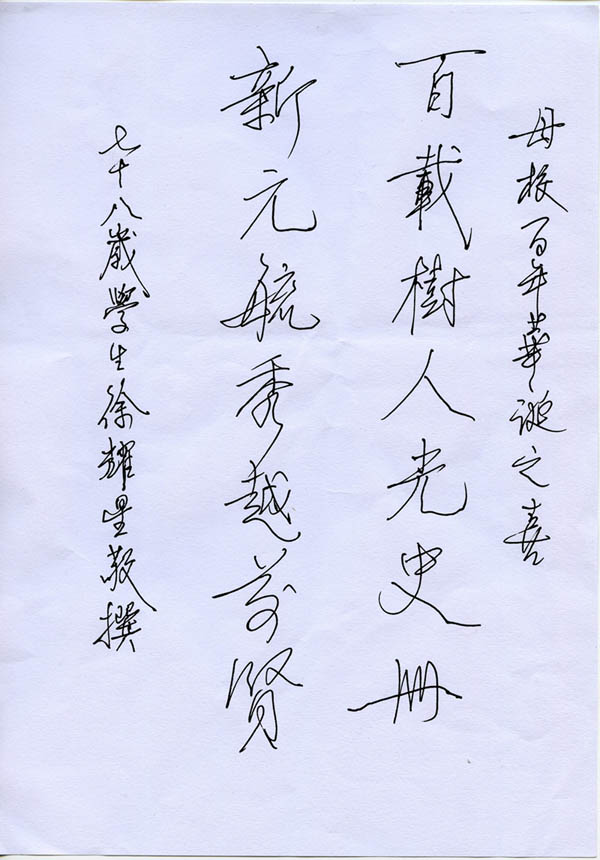 母校百年華誕之喜
百載樹人光史冊
新元毓秀越前賢
七十八歲學生徐耀星敬撰